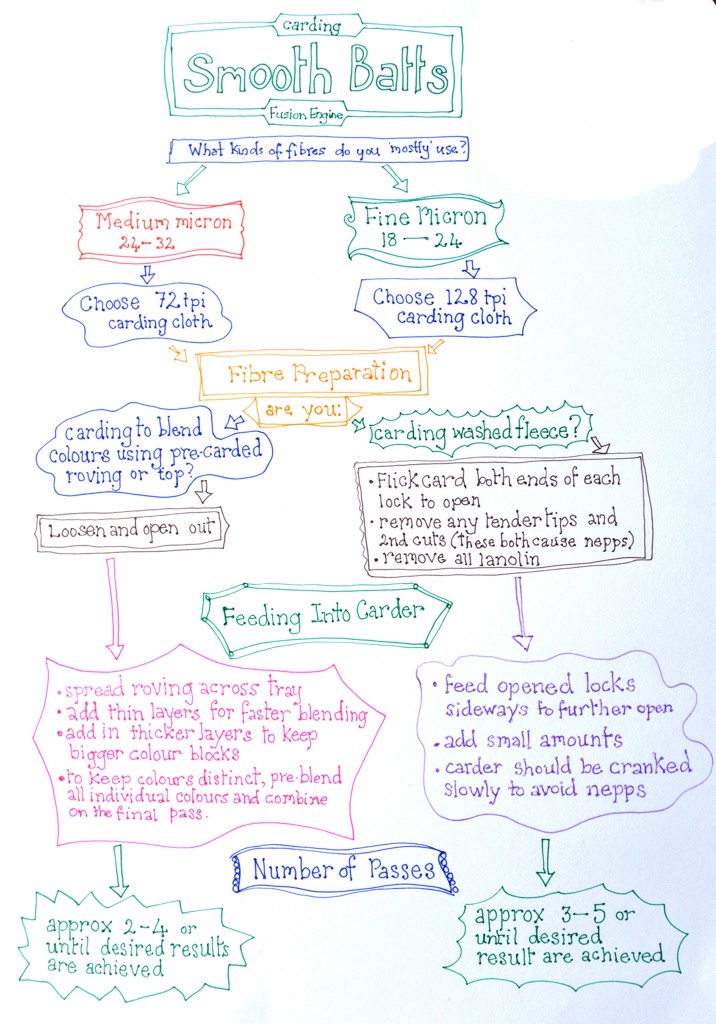 carding
Smooth Batts
Fusion Engine
What kinds of fibres do you 'mostly' use?
Medium micron
24-32
Fine Micron
18 — 24
Choose 72 tpi
carding cloth
Choose 128 tpi
carding cloth
Fibre Preparation
are you:
carding to blend
colours using pre-carded
roving or top?
carding washed fleece?
Loosen and open out
• Flick card both ends of each
lock to open
• remove any tender tips and
2nd cuts (these both cause nepps)
• remove all lanolin
Feeding Into Carder
• spread roving across tray
• add thin layers for faster blending
• add in thicker layers to keep
bigger colour blocks
• to keep colours distinct, pre-blend
all individual colours and combine
on the final pass.
• feed opened locks
sideways to further open
• add small amounts
• carder should be cranked
slowly to avoid nepps
Number of Passes
approx 2-4 or
until desired results
are achieved
approx 3-5 or
until desired
result are achieved